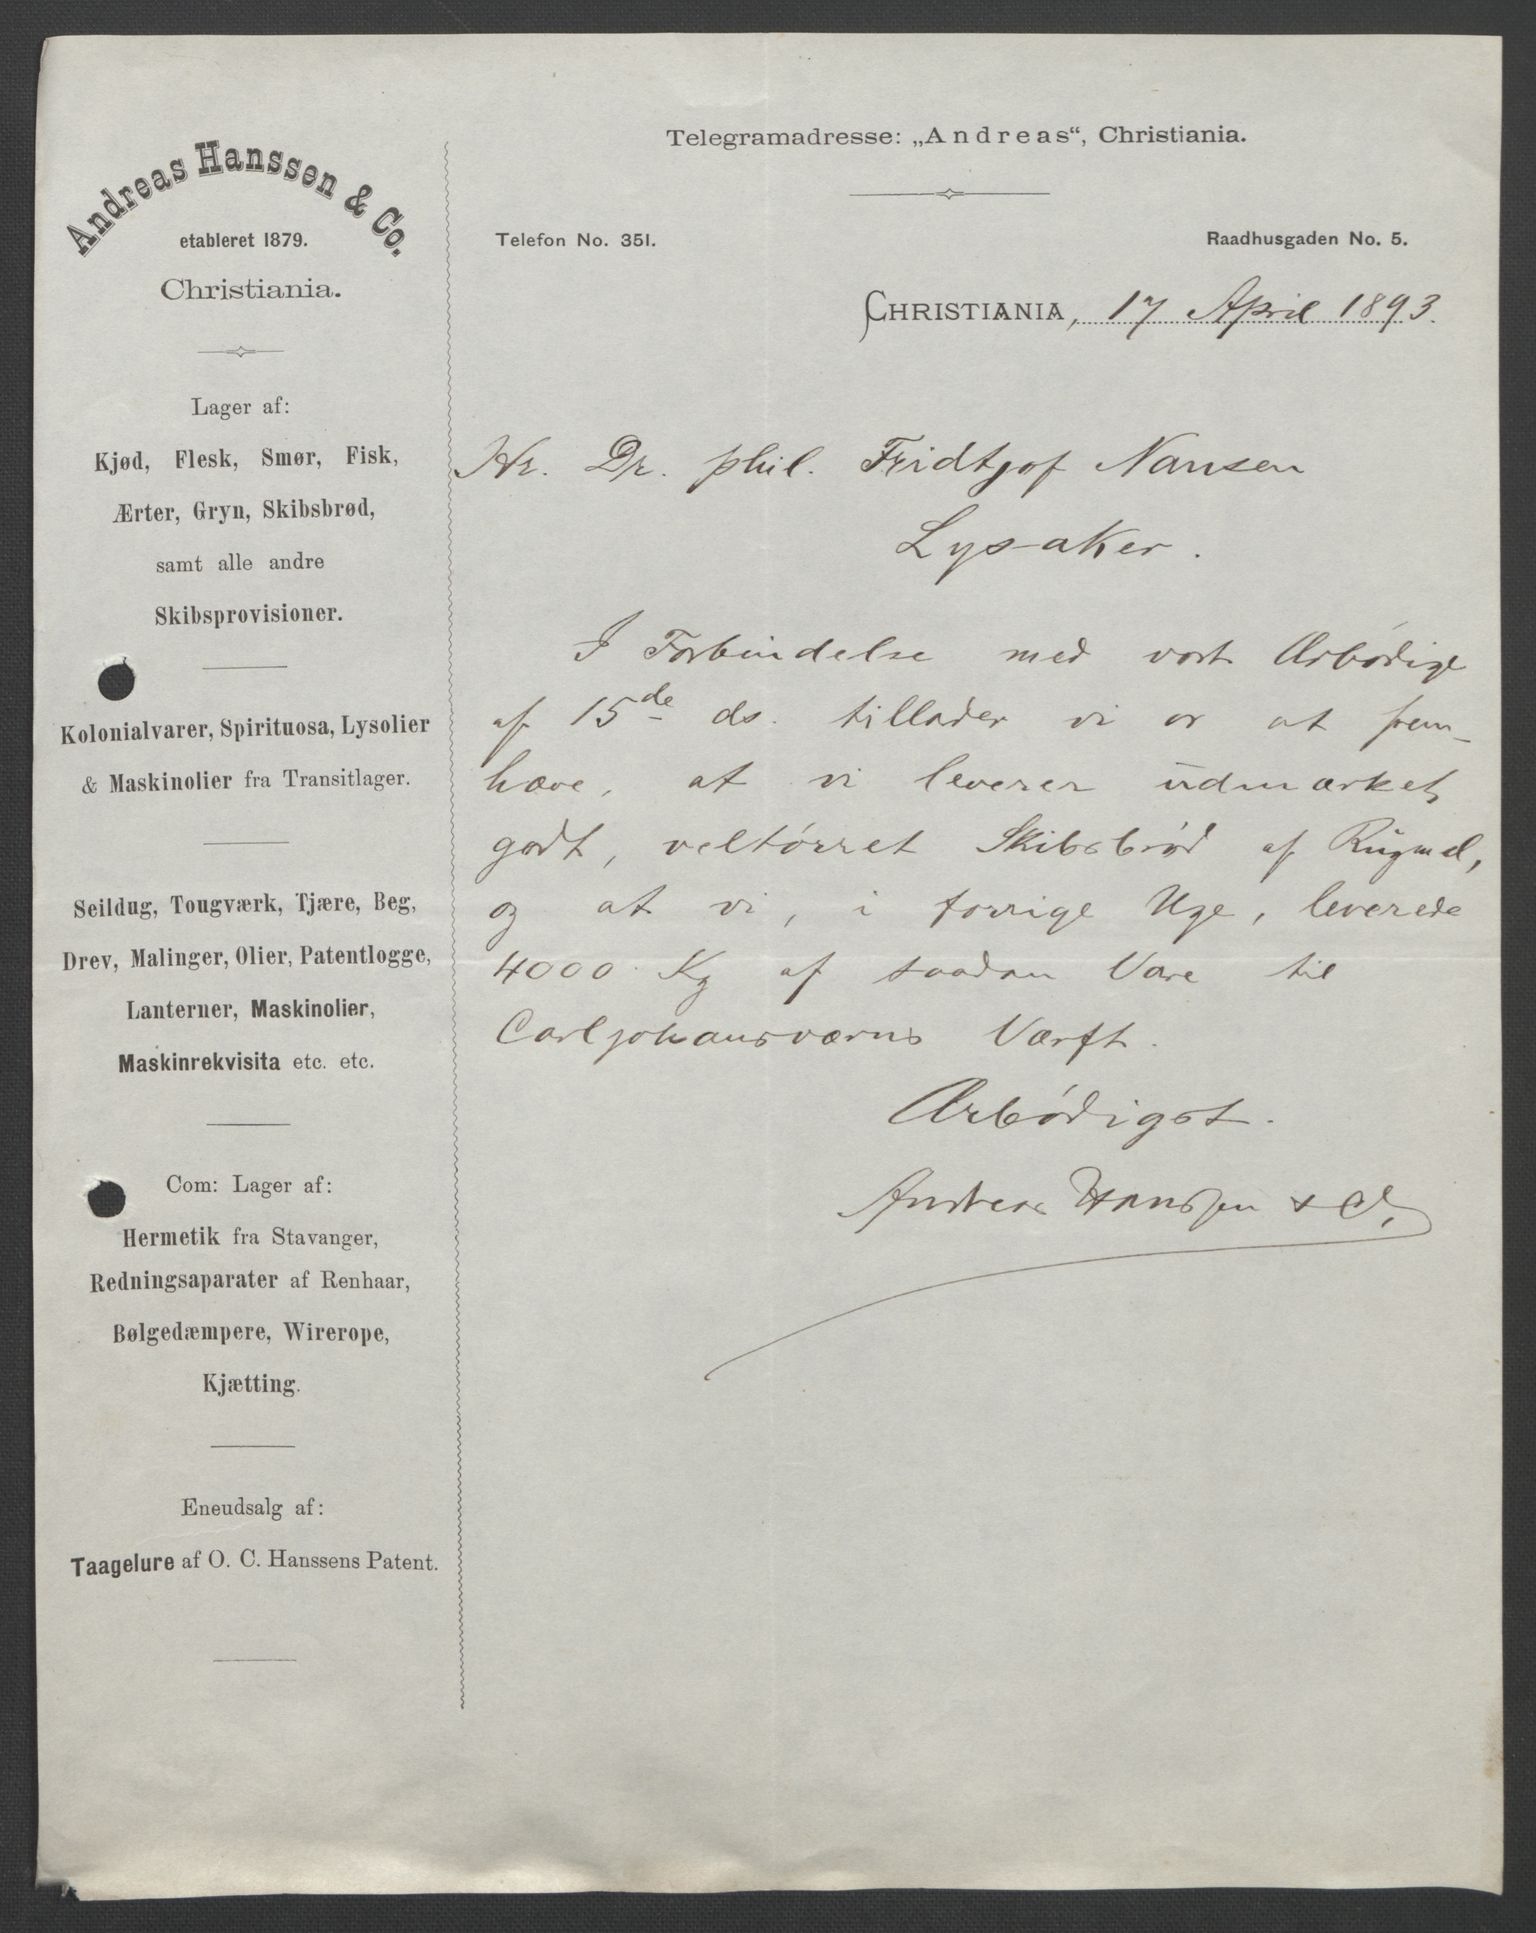 Andreas Hanssen & Co.
etableret 1879.
Christiania.
Lager af:
Kjød, Flesk, Smør, Fisk,
Ærter, Gryn, Skibsbrød,
samt alle andre
Skibsprovisioner.
Kolonialvarer, Spirituosa, Lysolier
& Maskinolier fra Transitlager.
Seildug, Tougværk, Tjære, Beg,
Drev, Malinger, Olier, Patentlogge,
Lanterner, Maskinolier,
Maskinrekvisita etc. etc.
Com: Lager af:
Hermetik fra Stavanger,
Redningsaparater af Renhaar,
Bølgedæmpere, Wirerope,
Kjætting.
Eneudsalg af:
Taagelure af O. C. Hanssens Patent.
Telegramadresse: „Andreas“, Christiania.
Telefon No. 351.
Raadhusgaden No. 5.
CHRISTIANIA, 17 April 1893.
Hr. Dr. phil. Fridtjof Nansen
Lysaker.
I Forbindelse med vort Ærbødige
af 15de ds. tillader vi os at frem-
hæve, at vi leverer udmærket
godt, veltørret Skibsbrød af Rugmel,
og at vi, i forrige Uge, leverede
4000 Kg af saadan Vare til
Carljohansværns Værft.
Ærbødigst.
Andreas Hanssen & Co.